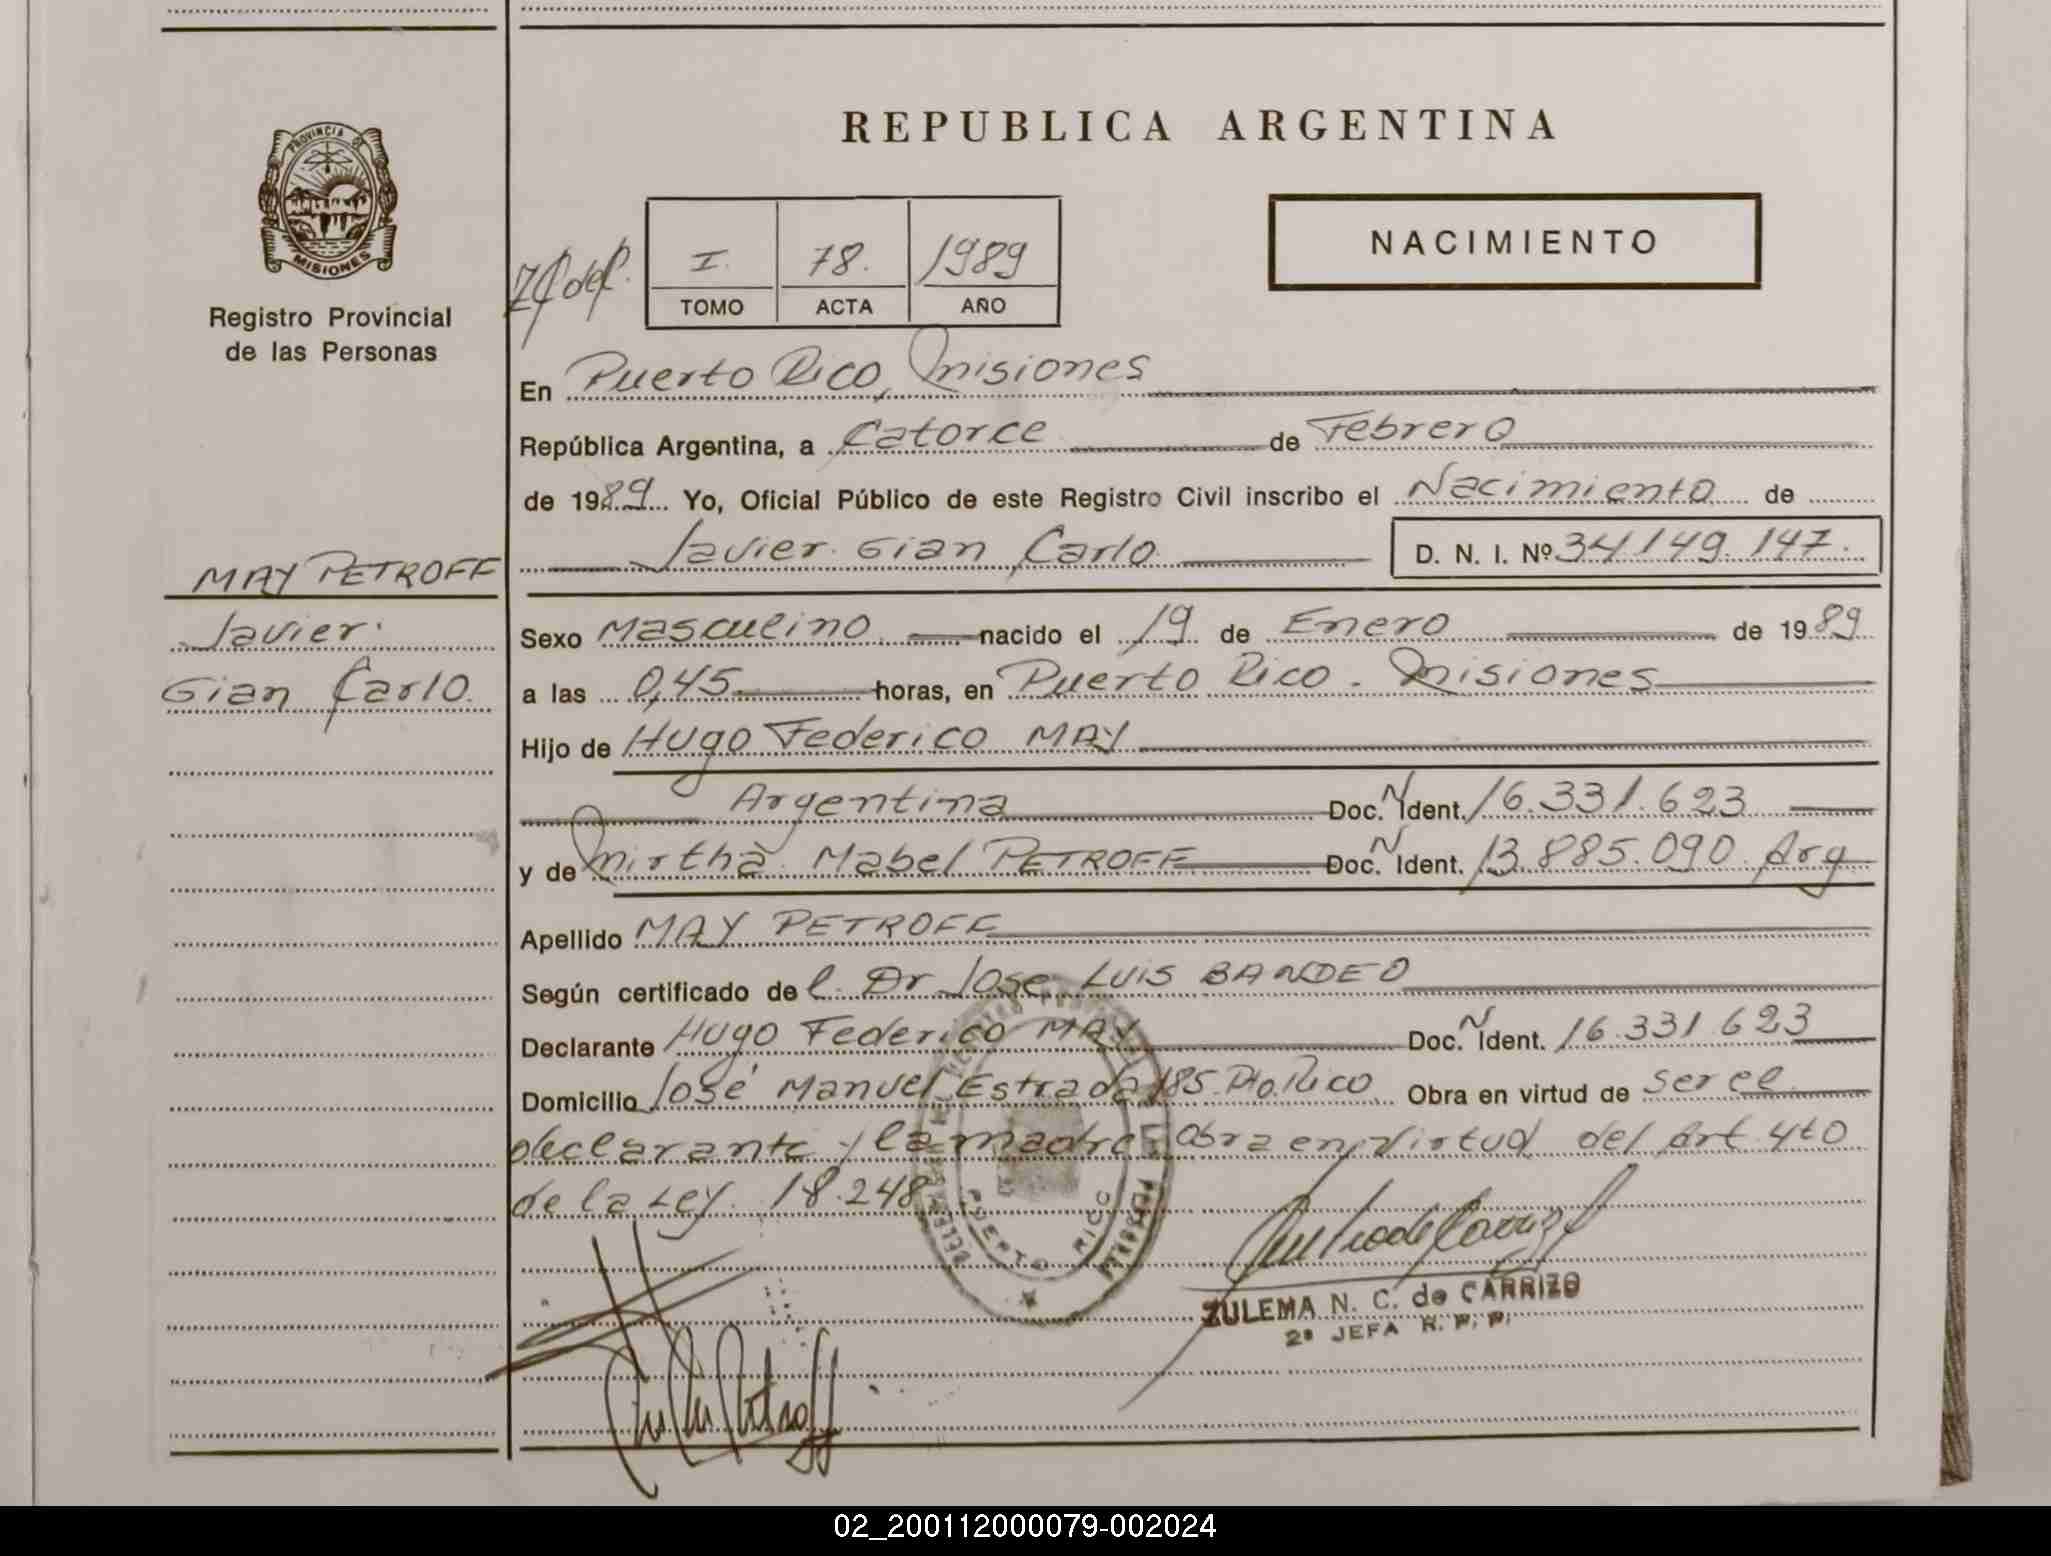 PROVINCIA DE
MISIONES
Registro Provincial
de las Personas
MAY PETROFF
Javier
Gian Carlo.
REPUBLICA ARGENTINA
I. 78. 1989
TOMO ACTA AÑO
NACIMIENTO
En Puerto Rico, Misiones
República Argentina, a Catorce de Febrero
de 1989 Yo, Oficial Público de este Registro Civil inscribo el Nacimiento de
Javier Gian Carlo D. N. I. Nº 34.149.147.
Sexo Masculino nacido el 19 de Enero de 1989
a las 0,45 horas, en Puerto Rico - Misiones
Hijo de Hugo Federico MAY
Argentina Doc. N Ident. 16.331.623
y de Mirtha Mabel PETROFF Doc. N Ident. 13.885.090 Arg
Apellido MAY PETROFF
Según certificado del Dr José LUIS BANDEO
Declarante Hugo Federico MAY Doc. N Ident. 16.331.623
Domicilio José Manuel Estrada 185. Pto. Rico Obra en virtud de ser el
declarante y la madre obra en virtud del Art 4to
de la Ley 18.248
PUERTO RICO
ZULEMA N. C. de CARRIZO
2ª JEFA R. P. P.
02_200112000079-002024